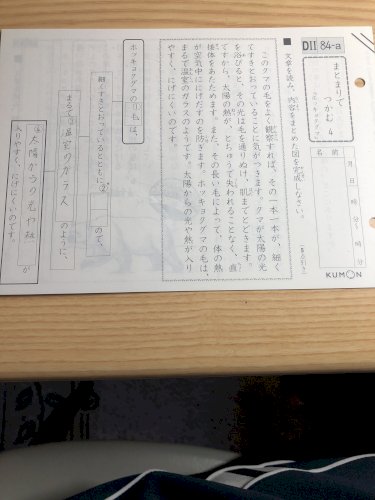 DⅡ 84-a
まとまりで
つかむ 4
月 日 時 分〜 時 分
名前
KUMON
■ 文章を読み、内容をまとめた図を完成しなさい。
このクマの毛をよく観察すれば、その一本一本が、細く
てすきとおっていることに気がつきます。クマが太陽の光
を浴びると、その光は毛を通りぬけ、肌までとどきます。
ですから、太陽の熱が、とちゅうで失われることなく、直
接体をあたためます。また、その長い毛によって、体の熱
が空気中ににげだすのを防ぎます。ホッキョクグマの毛は、
まるで温室のガラスのようです。太陽からの光や熱が入り
やすく、にげにくいのです。
ホッキョクグマの① 毛 は、
細くすきとおっているとともに② ので、
まるで③ 温室のガラス のように、
④ 太陽からの光や熱 が
入りやすく、にげにくいのです。